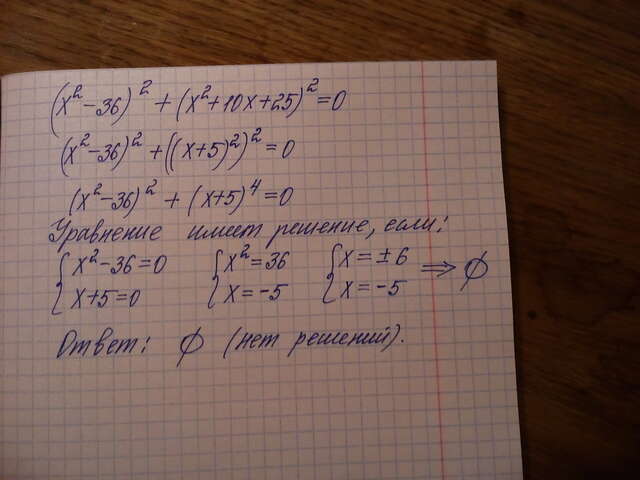 (x²-36)² + (x²+10x+25)² = 0
(x²-36)² + ((x+5)²)² = 0
(x²-36)² + (x+5)⁴ = 0
Уравнение имеет решение, если:
{ x²-36=0 { x²=36 { x=±6 ⇒ ∅
{ x+5=0 { x=-5 { x=-5
Ответ: ∅ (нет решений).